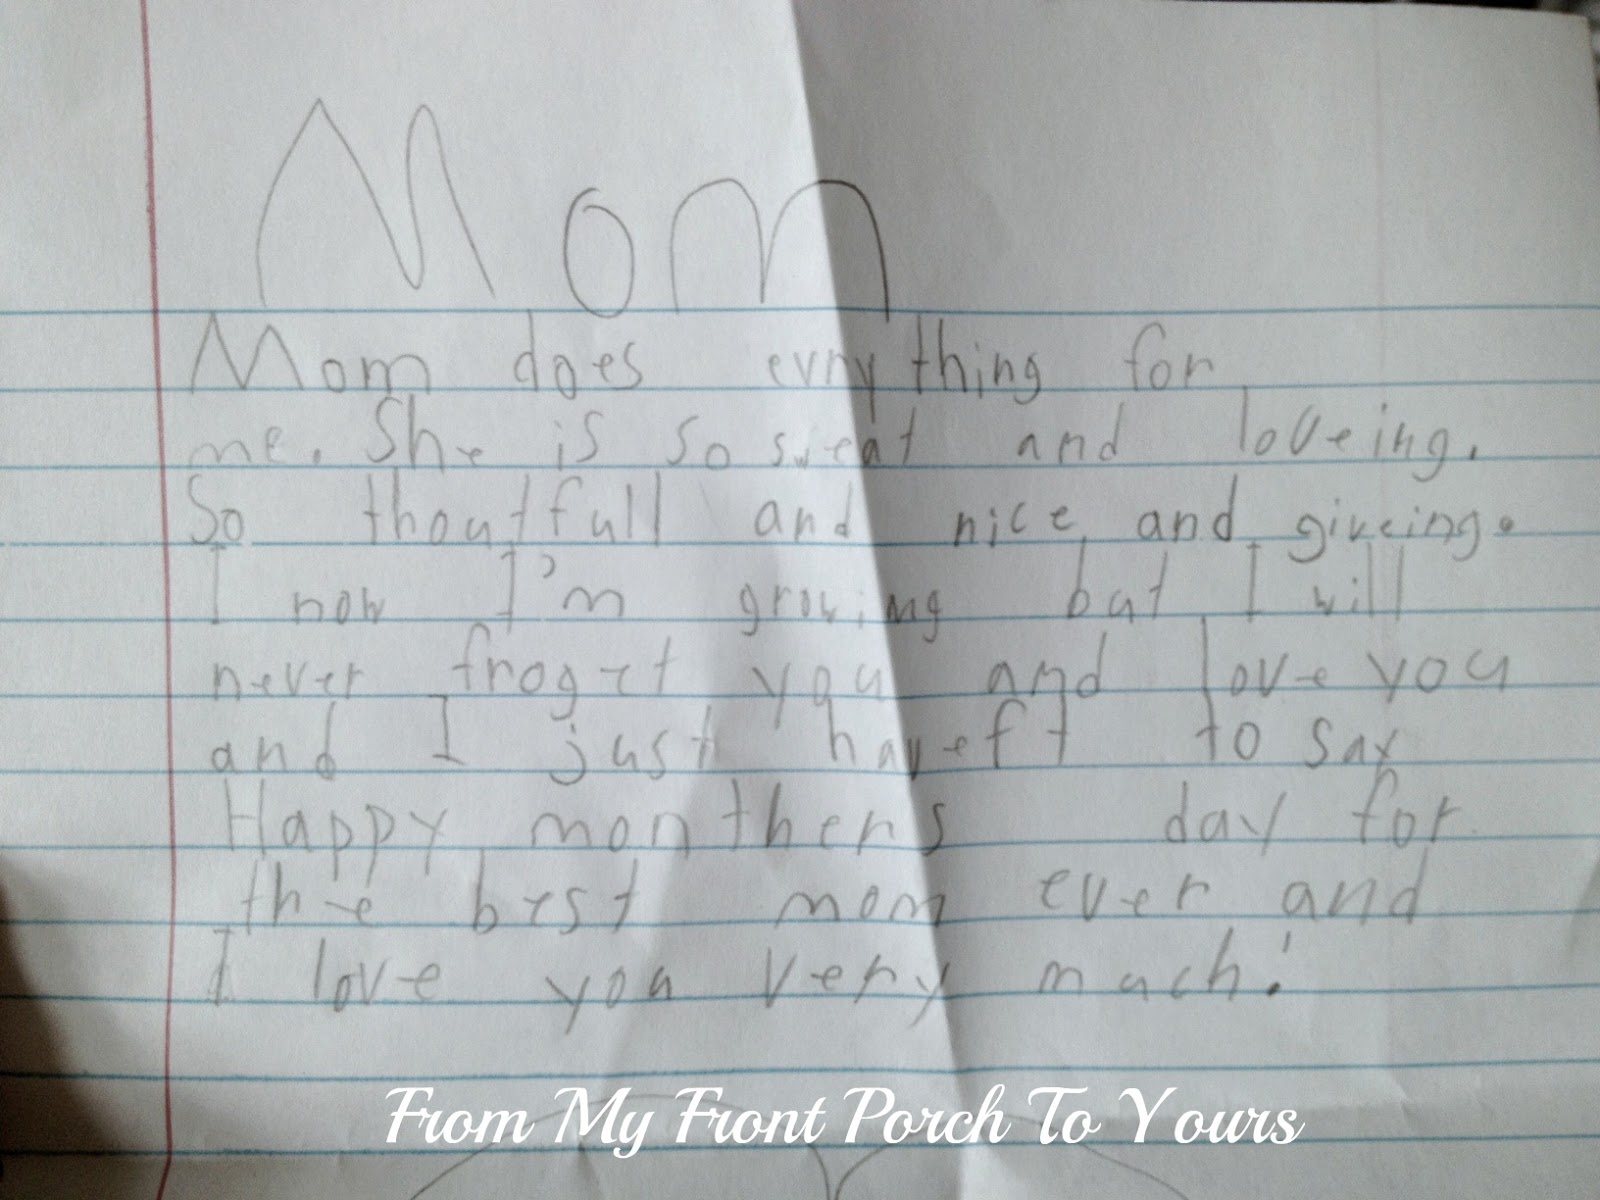 Mom
Mom does evrything for
me. She is so sweat and loveing.
So thoutfull and nice and giveing.
I now I'm growing but I will
never froget you and love you
and I just haveft to say
Happy monthers day for
the best mom ever and
I love you very much!
From My Front Porch To Yours